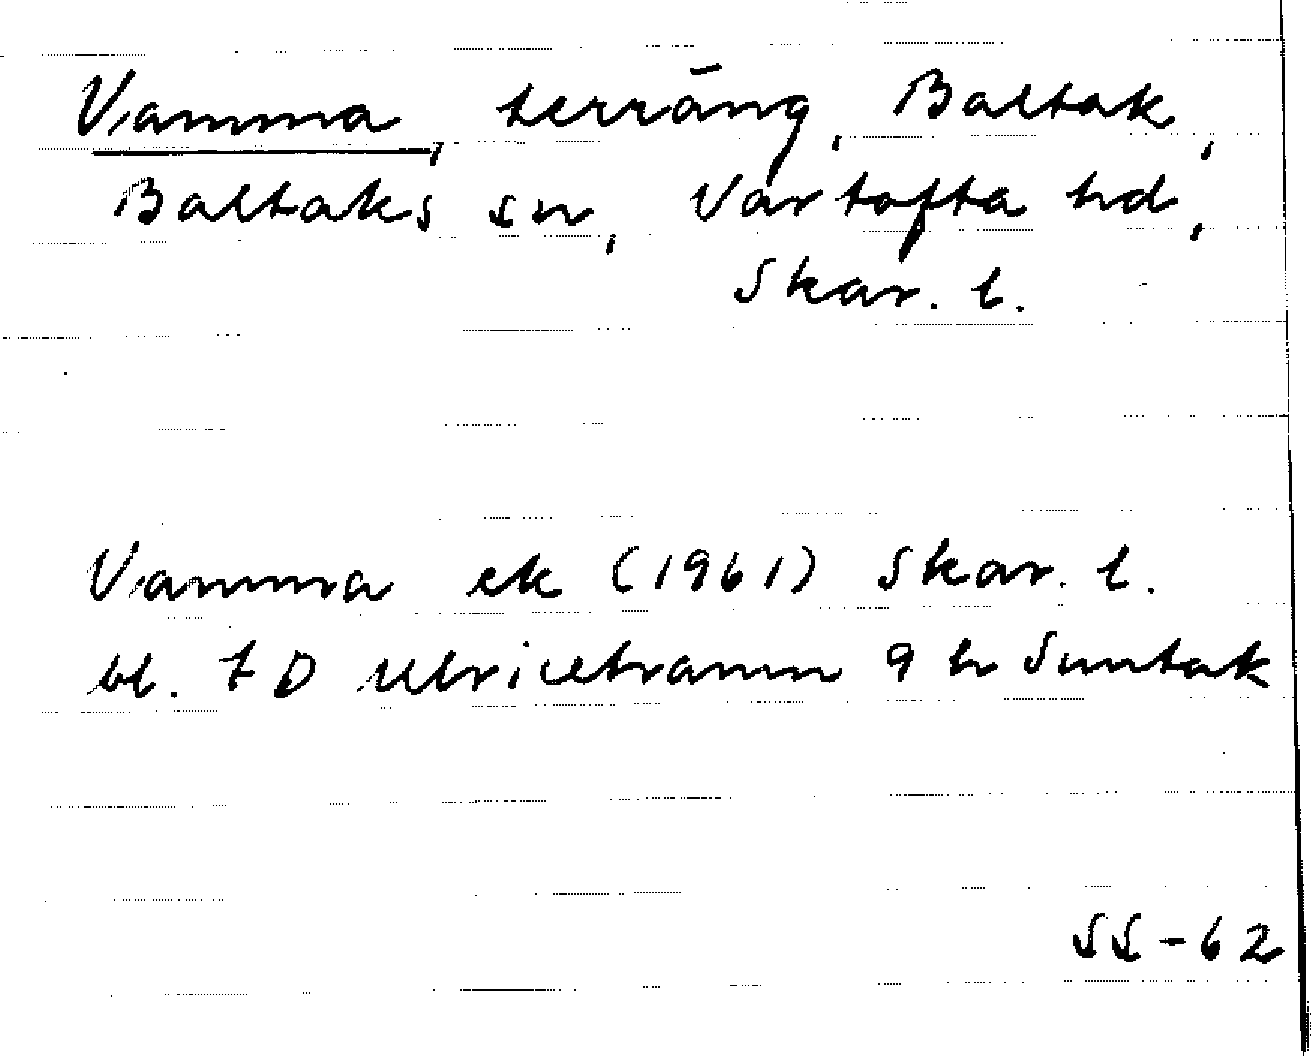 Vamma, terräng, Baltak,
Baltaks sn, Vartofta hd,
Skar. l.
Vamma ek (1961) Skar. l.
bl. 7D Ulricehamn 9 h Suntak
SS-62